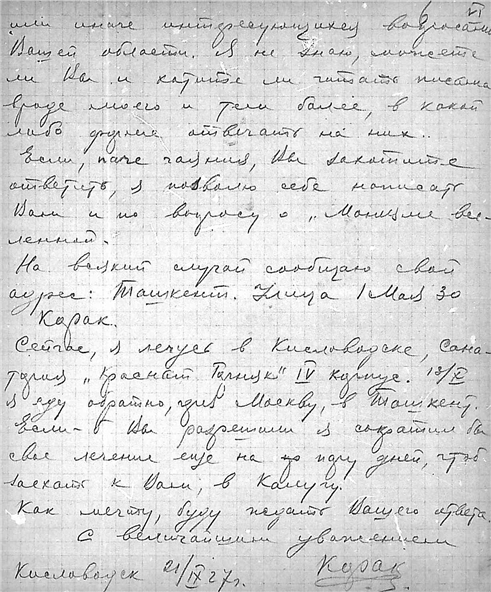 VI
или иначе интересующихся вопросами
Вашей области. Я не знаю, можете
ли Вы и хотите ли читать письма
вроде моего и тем более, в какой
либо форме отвечать на них..
Если, паче чаяния, Вы захотите
ответить, я позволю себе написать
Вам и по вопросу о „Монизме все-
ленной.
На всякий случай сообщаю свой
адрес: Ташкент. Улица 1 Мая 30
Корак.
Сейчас, я лечусь в Кисловодске, сана-
тория „Красный Горняк" IV корпус. 13/X
я еду обратно, через Москву, в Ташкент.
Если-б Вы разрешили я сократил бы
свое лечение еще на пару дней, чтоб
заехать к Вам, в Калугу.
Как мечту, буду ждать Вашего ответа.
С величайшим уважением
Кисловодск 21/IX 27г. Корак